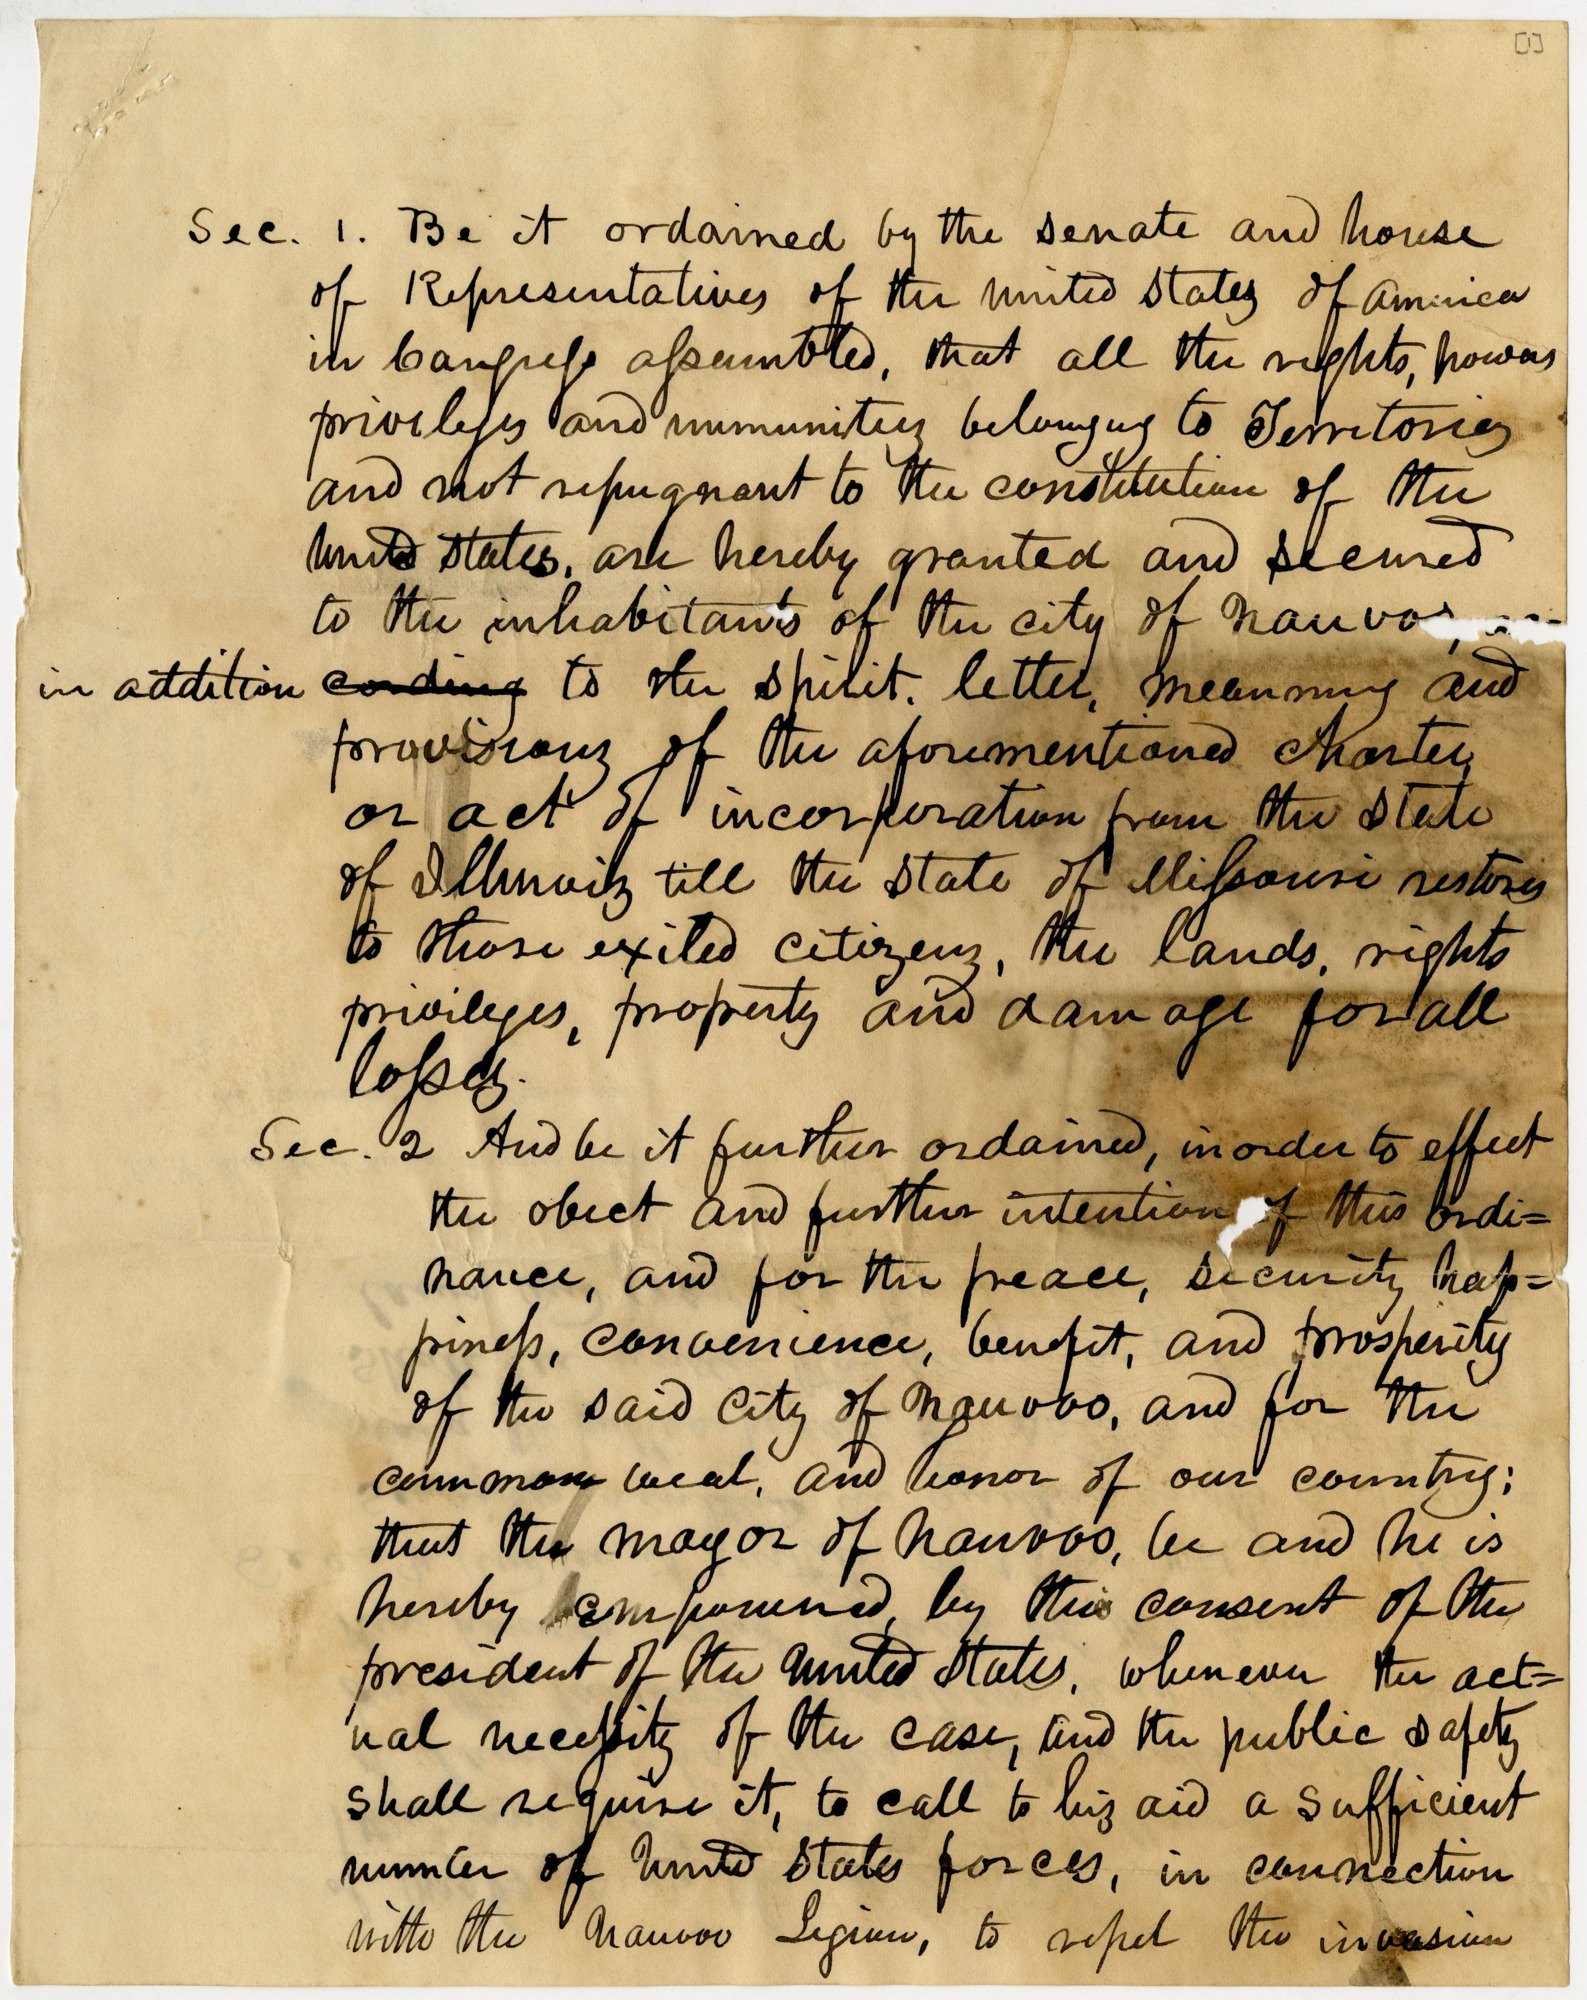 [1]
Sec. 1. Be it ordained by the senate and house
of Representatives of the united States of america
in Congress assembled, that all the rights, powers
privileges and immunities belonging to Territories
and not repugnant to the constitution of the
united States, are hereby granted and secured
to the inhabitants of the city of nauvoo,
in addition cording to the spirit, letter, meanning and
provisions of the aforementioned charter,
or act of incorporation from the State
of Illinois till the State of Missouri restores
to those exiled citizens, the lands, rights
privileges, property and damage for all
losses.
Sec. 2 And be it further ordained, in order to effect
the obect and further intention of this ordi=
nance, and for the peace, security hap=
piness, convenience, benefit, and prosperity
of the said city of nauvoo, and for the
common weal, and honor of our country;
that the mayor of nauvoo, be and he is
hereby empowered, by this consent of the
president of the united States, whenever the act=
ual necessity of the case, and the public safety
shall require it, to call to his aid a sufficient
number of united States forces, in connection
with the nauvoo Legion, to repel the invasion